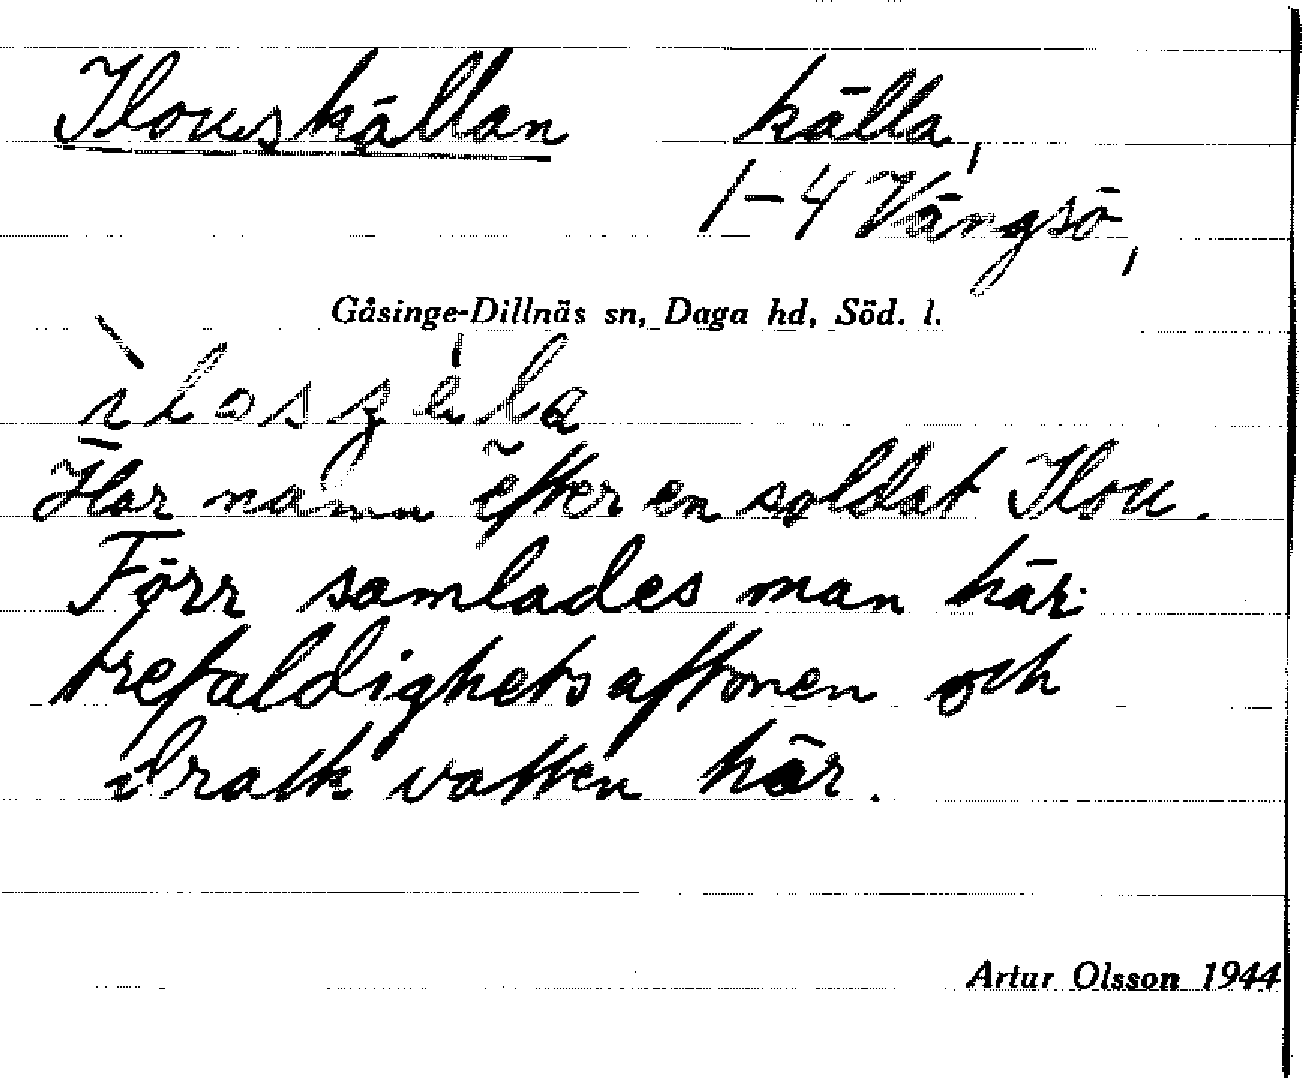 Ilouskällan källa,
1-4 Vängsö,
Gåsinge-Dillnäs sn, Daga hd, Söd. l.
Har namn efter en soldat Ilou.
Förr samlades man här
trefaldighetsaftonen och
drack vatten här.
Artur Olsson 1944